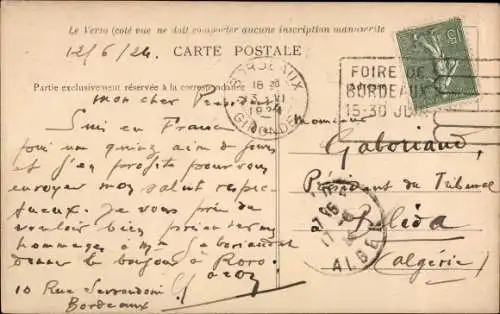 Le Verso (côté vue) ne doit comporter aucune inscription manuscrite
12/6/24
CARTE POSTALE
Partie exclusivement réservée à la correspondance
mon cher President
Suis en France
pour une quinzaine de jours
et j'en profite pour vous
envoyer mon salut respec-
tueux. Je vous prie de
vouloir bien présenter mes
hommages à Me Gaboriaud
donner le bonjour à Roro.
10 Rue
Bordeaux
BORDEAUX
18 30
13 VI
1924
GIRONDE
FOIRE DE
BORDEAUX
15-30 JUIN
15
Monsieur
Gaboriaud,
Président du Tribunal
Bléda
(Algérie)
BLIDA
ALGER